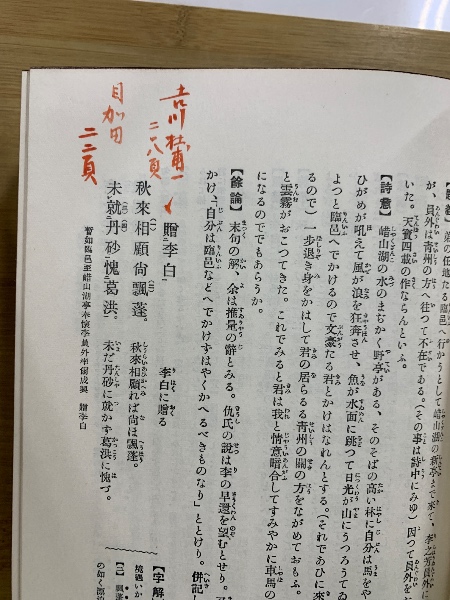 弟の任地たる臨邑へ行かうとして䧿山湖の新亭まで來て、李之芳員外に
が、員外は青州の方へ往つて不在である。(その事は詩中にみゆ)因つて員外を
いた。天寶四載の作ならんといふ。
【詩意】 䧿山湖の水のまぢかく野亭がある、そのそばの高い林に自分は馬をや
ひがめが吼えて風が浪を狂奔させ、魚が水面に跳つて日光が山にうつろうてゐ
よつと臨邑へでかけるので文豪たる君とかけはなれんとする。(それであひに來
るので)一步退き身をかはして君の居らるる青州の關の方をながめておもふ。
と雲霧がおこつてきた。これでみると君は我と情意暗合してすみやかに車馬の
になるのででもあらうか。
【餘論】 末句の解、余は推量の辭とみる。仇氏の說は李の早還を望むとせり。
かけ、自分は臨邑などへでかけずはやくかへるべきものなり」ととけり。倂記し
吉川 杜甫一
二八頁
目加田
二二頁
贈李白
李白に贈る
秋來相顧尙飄蓬。
秋來相顧れば尙ほ飄蓬。
未就丹砂愧葛洪。
未だ丹砂に就かず葛洪に愧づ。
【字解】
暫如臨邑至䧿山湖亭奉懷李員外率爾成興 贈李白